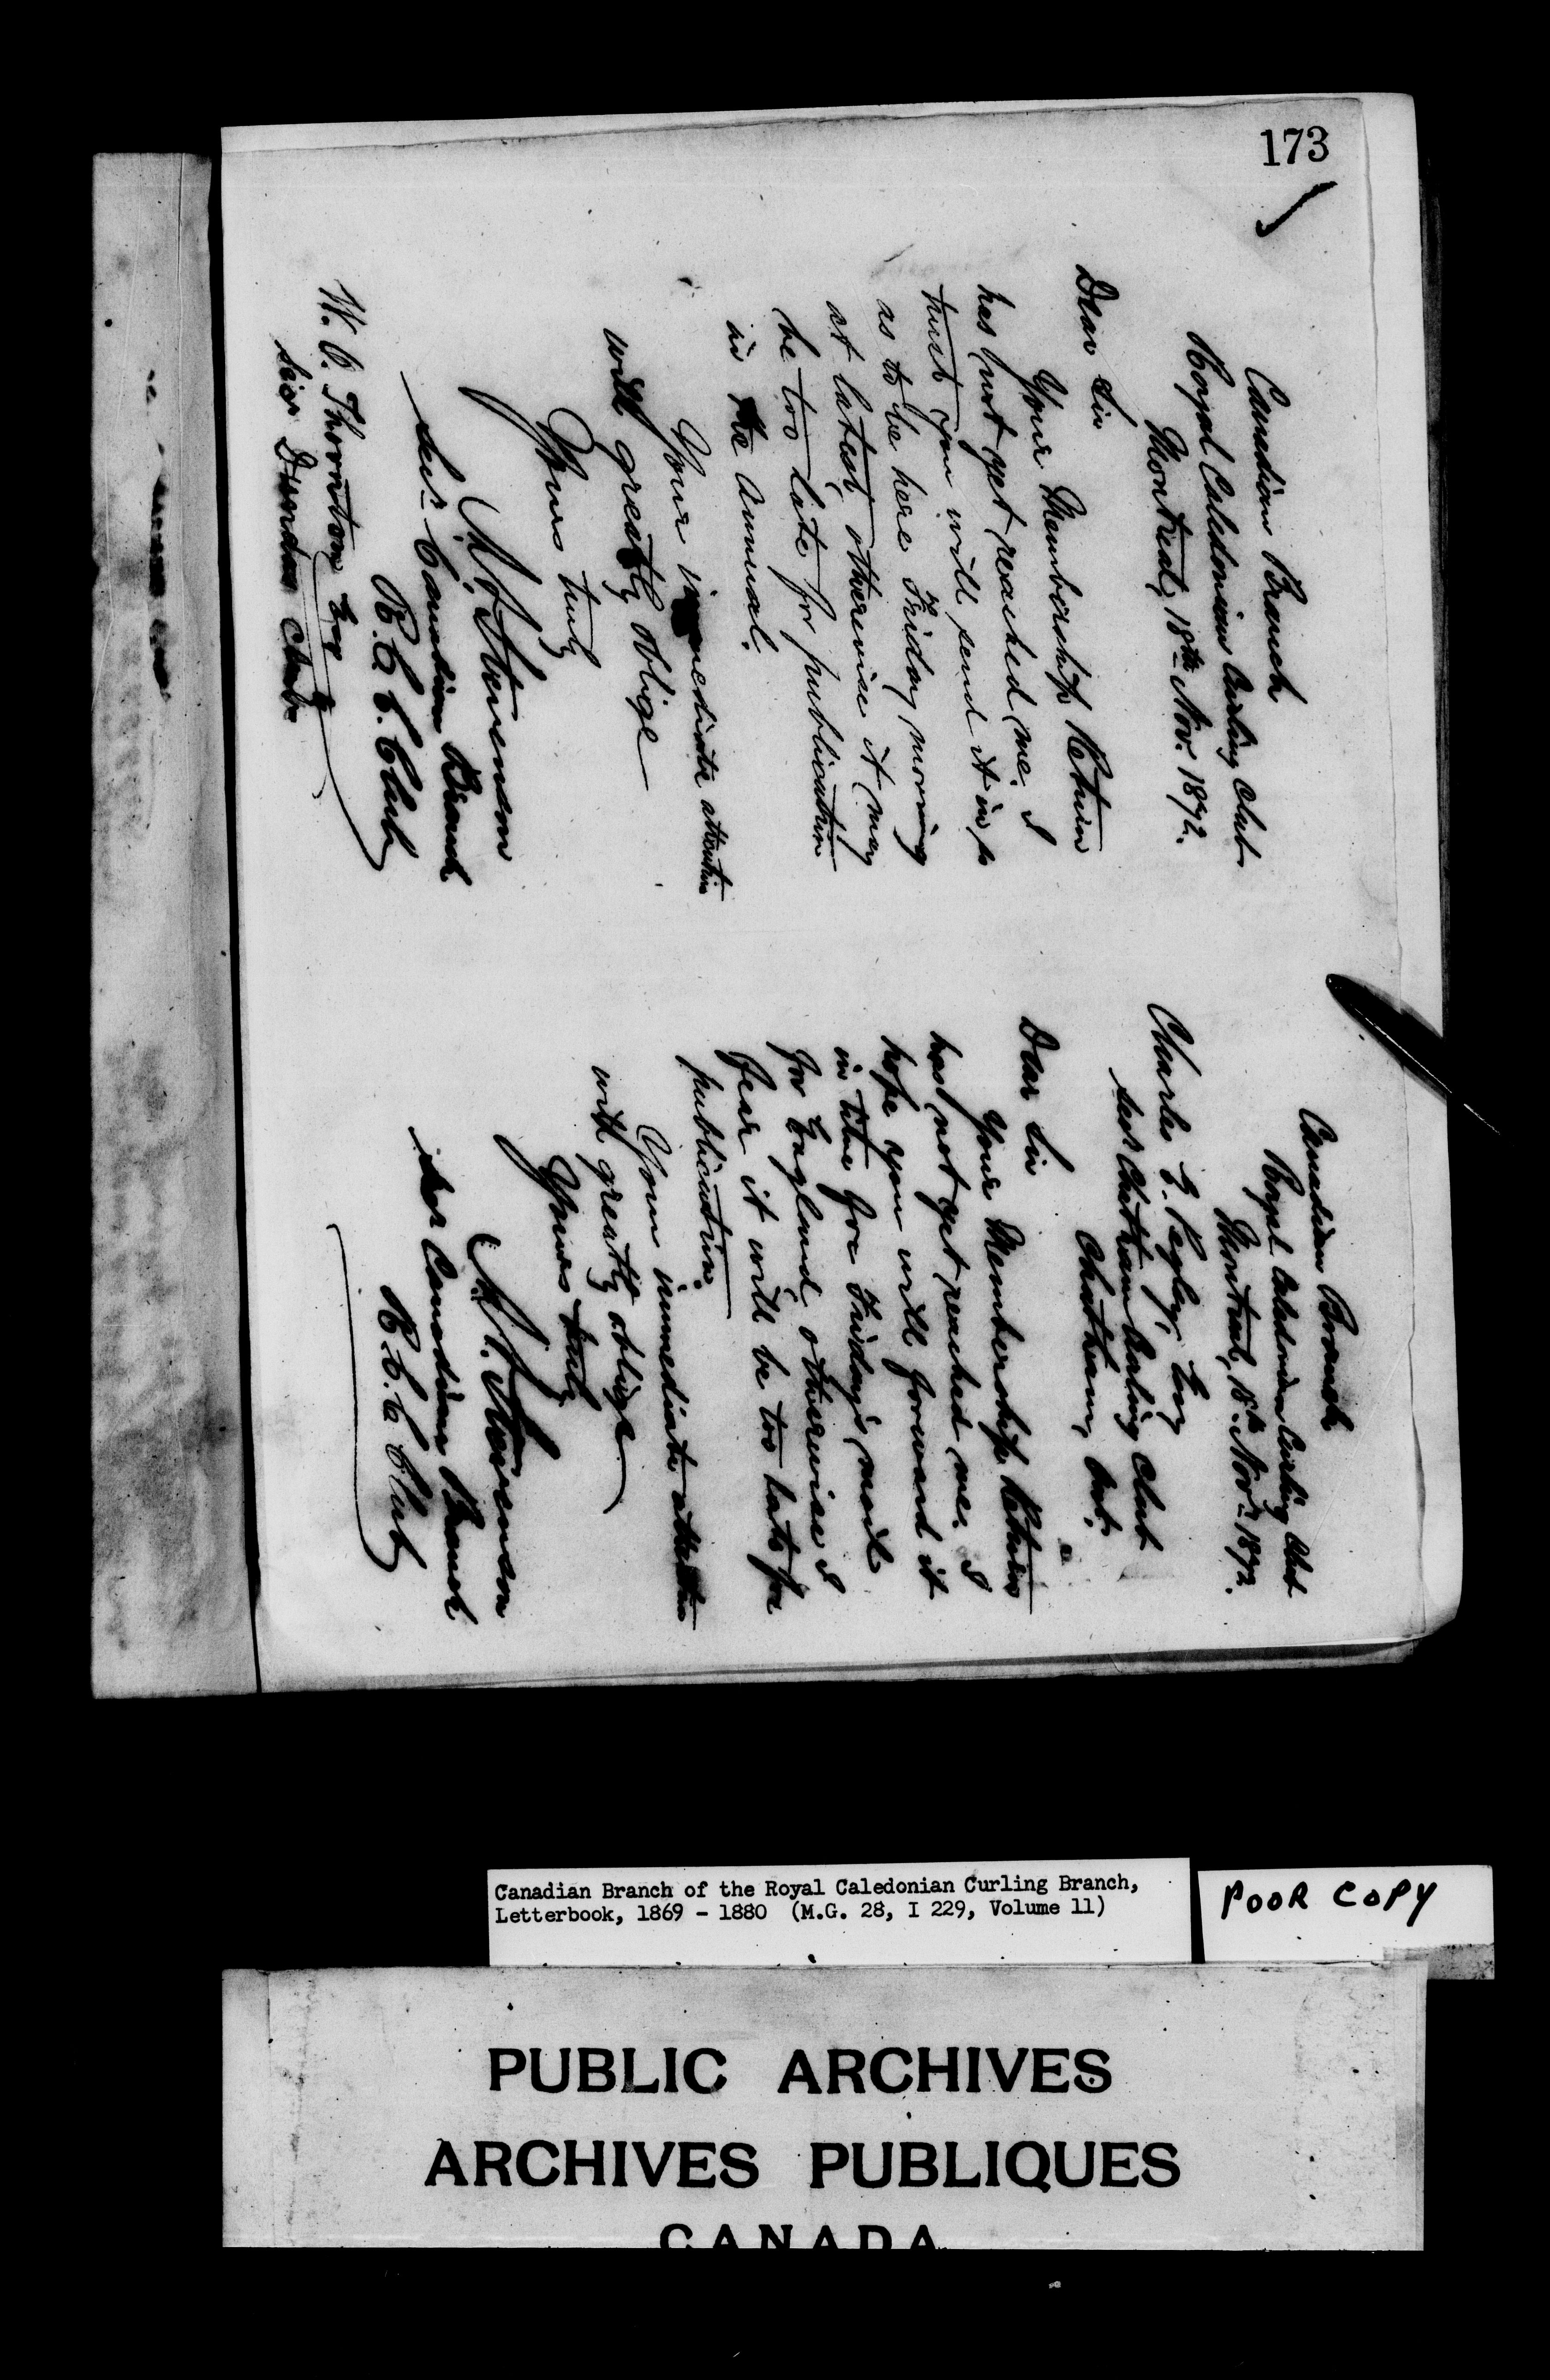 173
Canadian Branch
Royal Caledonian Curling Club
Montreal, 18th Nov. 1872.
Dear Sir
Your Membership Return
has not yet reached me. I
trust you will send it in so
as to be here Friday morning
at latest, otherwise it may
be too late for publication
in the Annual.
Your immediate attention
will greatly oblige
Yours truly
A. Stevenson
Sec. Canadian Branch
R. C. C. Club
W. O. Thornton Esq
Secy Dundas Club
Canadian Branch
Royal Caledonian Curling Club
Montreal, 18th Nov. 1872.
Charles E. Pegley, Esq
Sec Chatham Curling Club
Chatham, Ont.
Dear Sir
Your Membership Return
has not yet reached me. I
hope you will forward it
in time for Friday's mail
for England, otherwise I
fear it will be too late for
publication.
Your immediate attention
will greatly oblige
Yours truly
A. Stevenson
Sec Canadian Branch
R. C. C. Club
Canadian Branch of the Royal Caledonian Curling Branch,
Letterbook, 1869 - 1880 (M.G. 28, I 229, Volume 11)
POOR COPY
PUBLIC ARCHIVES
ARCHIVES PUBLIQUES
CANADA